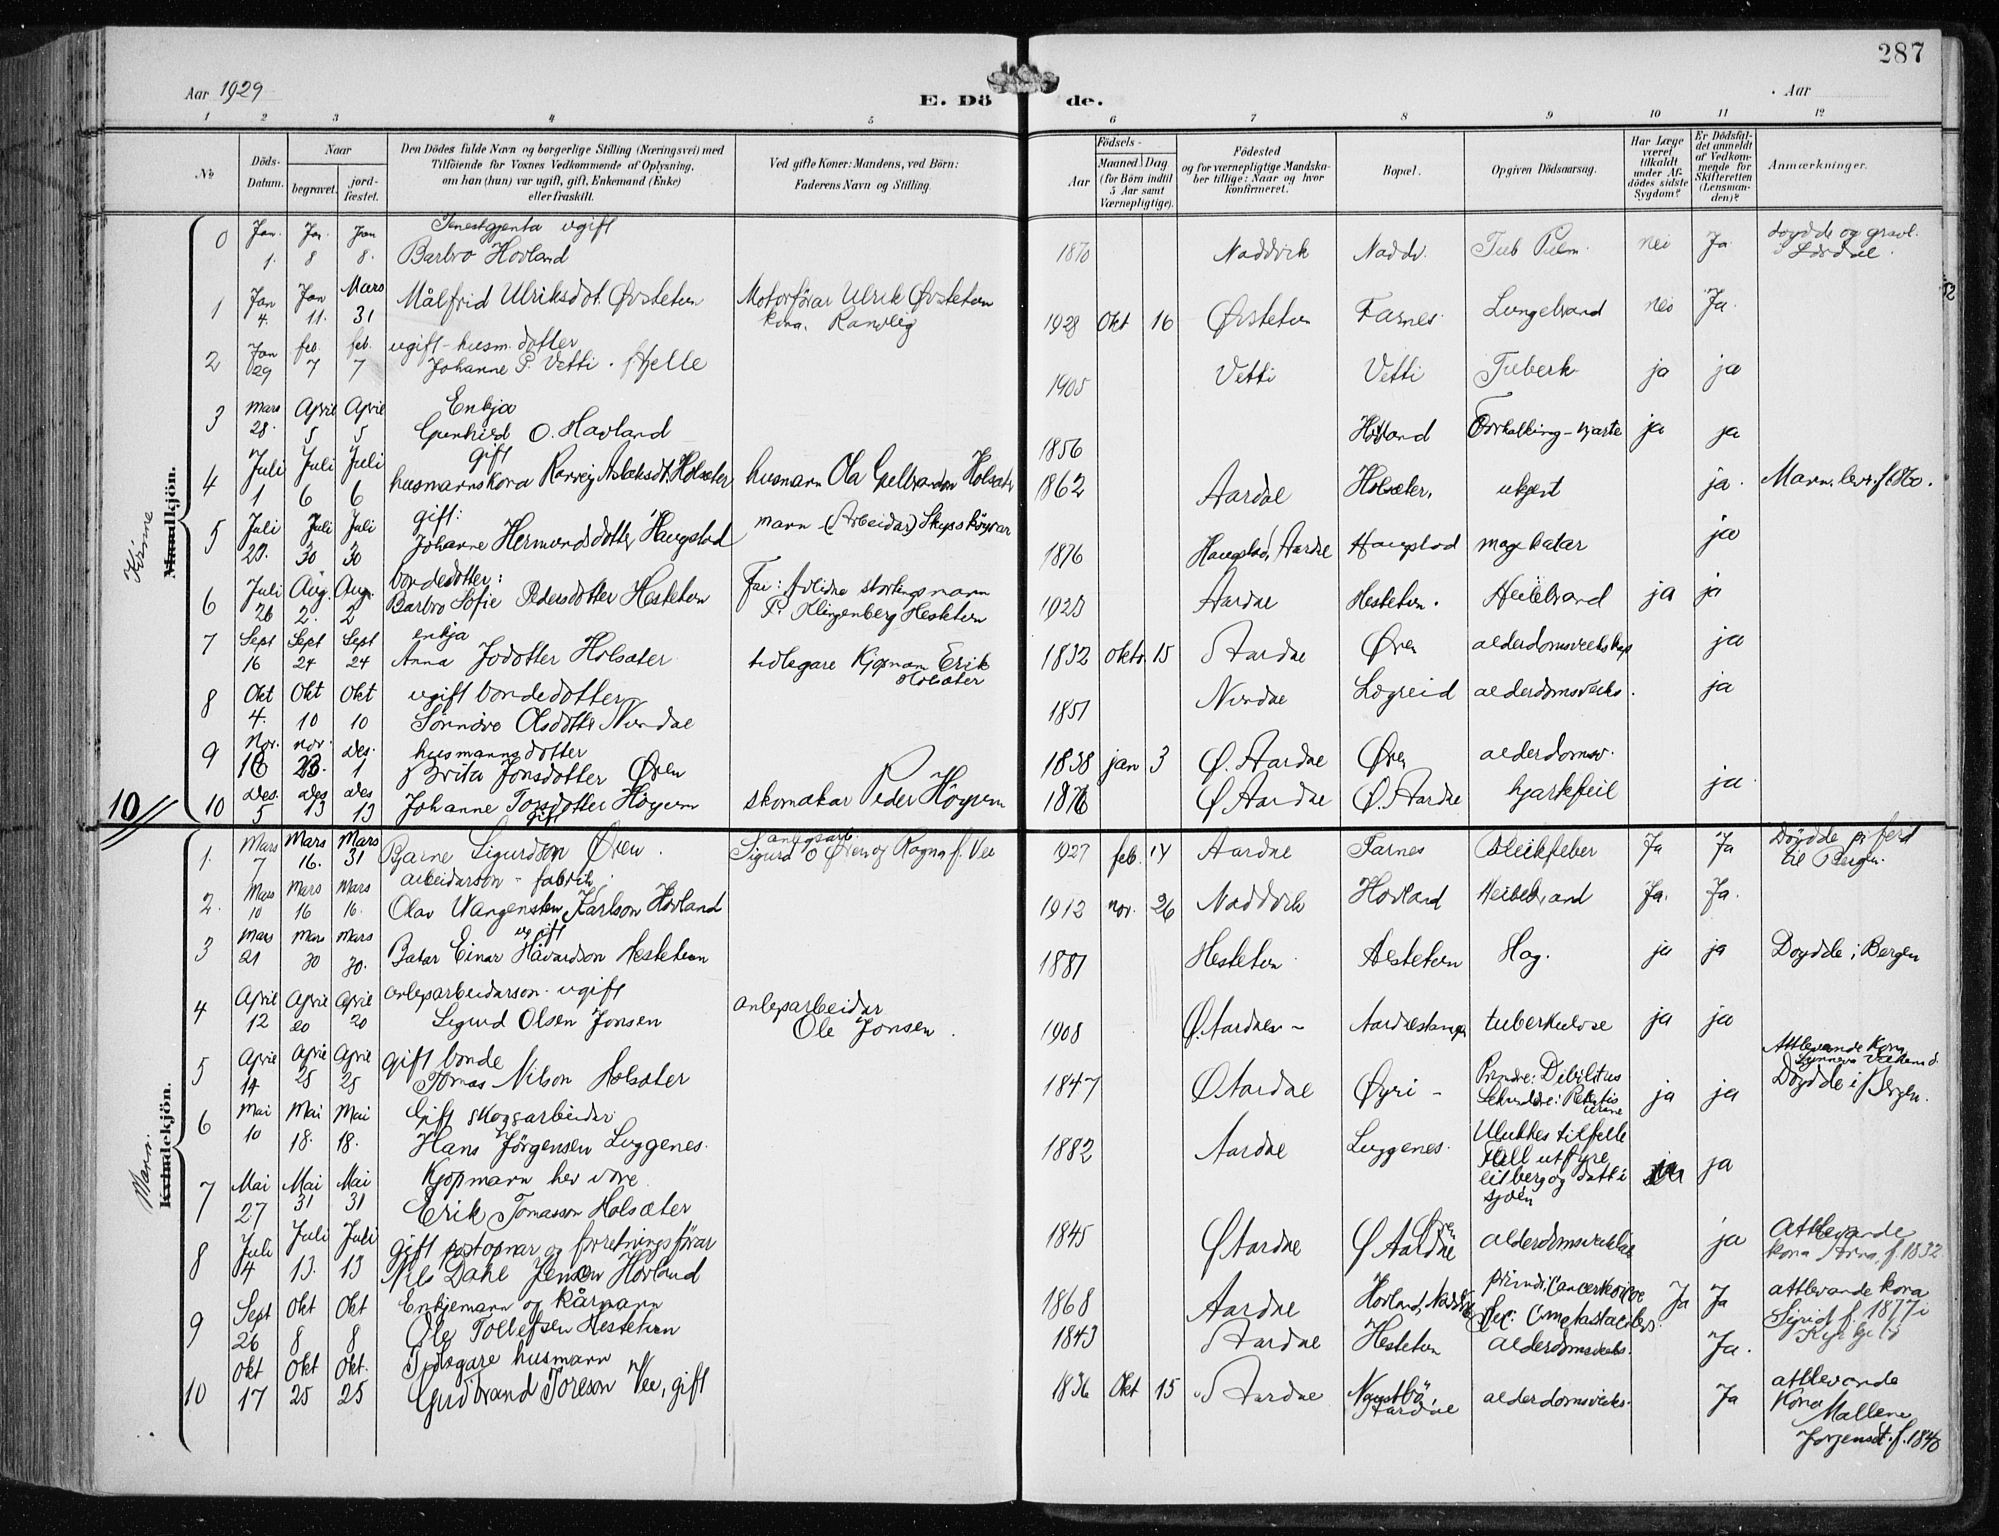 287
Aar 1929
E. Döde.
Aar
1 2 3 4 5 6 7 8 9 10 11 12
No
Döds-Datum.
Naar
begravet.
jord-fæstet.
Den Dödes fulde Navn og borgerlige Stilling (Næringsvei) med
Tilföiende for Voxnes Vedkommende af Oplysning,
om han (hun) var ugift, gift, Enkemand (Enke)
eller fraskilt.
Ved gifte Koner: Mandens, ved Börn:
Faderens Navn og Stilling.
Födsels-
Aar
Maaned Dag
(for Börn indtil
5 Aar samt
Værnepligtige).
Födested
og for værnepligtige Mandska-
ber tillige: Naar og hvor
konfirmeret.
Bopæl.
Opgiven Dödsaarsag.
Har Læge
været
tilkaldt
under Af-
dödes sidste
Sygdom?
Er Dödsfal-
det anmeldt
af Vedkom-
mende for
Skifteretten
(Lensman-
den)?
Anmærkninger.
Kvinne
Mandkjön.
0 Jan. 1. Jan 8 Jan 8. Tenestgjenta ugift
Barbro Hovland 1870 Naddvik Naddv. Tub Pulm. nei Ja Döydde og gravl. i Lærdal.
1 Jan 4. Jan 11. Mars 31 Målfrid Ulriksdot. Øvstetun Motorförar Ulrik Øvstetun
kona Ranveig 1928 Okt 16 Øvstetun Farnes Lungebrand nei Ja.
2 Jan 29 feb. 7 feb. 7 ugift husm. dotter
Johanne P. Vetti. fjelle 1905 Vetti Vetti Tuberk ja ja
3 Mars 28. April 5 April 5 Enkja
Gunhild O. Hovland 1856 Hovland Forkalking - hjarte ja ja
4 Juli 1 Juli 6 Juli 6 gift
husmannskona Ranveig Aslaksdt. Holsæter husmann Ola Holsæter 1862 Aardal Holsæter, ukjent ja. Mann. lev. f. 1860.
5 Juli 29. Juli 30 Juli 30 gift:
Johanne Hermundsdotter Haugstad mann - (Arbeidar) 1876 Haugstad, Aardal Haugstad magekatar ja
6 Juli 26 Aug. 2. Aug. 2 bondedotter:
Barbro Sofie Pedersdotter Hestetun Far: Avlidne stortingsmann
P. Klingenberg Hestetun Aardal Hestetun. Heilebrand ja ja
7 Sept 16 Sept 24 Sept 24 enkja
Anna Jodotter Holsæter tidlegare Kjøpmann Erik
Holsæter 1832 Okto. 15 Aardal Øren alderdomsveikskap ja
8 Okt 4. Okt 10 Okt 10 ugift bondedotter
Sønnøve Olsdotter Nundal 1851 Nundal Lægreid alderdomsveiks. ja
9 Nov. 16 nov. 23. des. 1 husmannsdotter
Brita Jonsdotter Øren 1838 jan 3 Ø. Aardal Øren alderdomsv.
10 des. 5 des 13 des 13 Johanne Torsdotter Höyum skomakar Peder Höyum 1876 Ø Aardal Ø. Aardal hjartefeil ja
gift
10
Mann.
Kvindekjön.
1. Mars 7 Mars 16. Mars 31 Bjarne Sigurdson Øren. anlegsarb.
Sigurd O Øren og Ragna f. Vee 1927 feb. 14 Aardal Farnes Ja Ja Döydde på ferd til Bergen.
2. Mars 10 Mars 16 Mars 16. arbeidarson - fabrik
Olav Wangensten Karlson Hovland 1912 nov. 26 Naddvik Hovland Heilebrand Ja. Ja.
3 Mars 21 mars 30 Mars 30. ugift
Bakar Einar Håvardson Hestetun 1881 Hestetun Hestetun Slag. ja ja Döydde i Bergen
4 April 12 April 20 April 20 anlegsarbeidarson. ugift
Sigurd Olsen Jonsen anlegsarbeidar
Ole Jonsen. 1908 Ø. Aardal - Aardalstangen tuberkulose ja ja
5 April 14 April 25 April 25 gift bonde
Tomas Nilson Holsæter 1847 Ø Aardal Øyri - ja ja Attlevande kona
Döydde i Bergen.
6 Mai 10 Mai 18. Mai 18. Gift skogsarbeidar
Hans Jörgensen Luggenes. 1882 Aardal Luggenes. Ulukkes tilfelle
Fell utfyre
eit berg og datt i
sjøen ja ja
7 Mai 27 Mai 31 Mai 31 Kjøpmann her vore
Erik Tomasson Holsæter 1845 Ø Aardal Øren
Ø Aardal alderdomsveikskap ja Attlevande
kona Anna f. 1832.
8 Juli 4 Juli 13. Juli 13 gift postopnar og forretningsförar
Nils Dahl Jenson Hovland 1868 Aardal Hovland, Naddvik Ja Ja attlevande kona
Sigrid f. 1877 i
9 Sept 26 Okt 8 Okt 8 Enkjemann og kårmann
Ole Tollefsen Hestetun 1843 Aardal Hestetun alderdomsveiks. Ja.
10 Okt 17 Okt 25 Okt. 25 Tidlegare husmann
Gudbrand Toreson Vee, gift 1836 Okt 15 Aardal Naustbø,
Aardal alderdomsveiks. Ja attlevande
Kona
Mallene
Jorgensdt. f. 1840